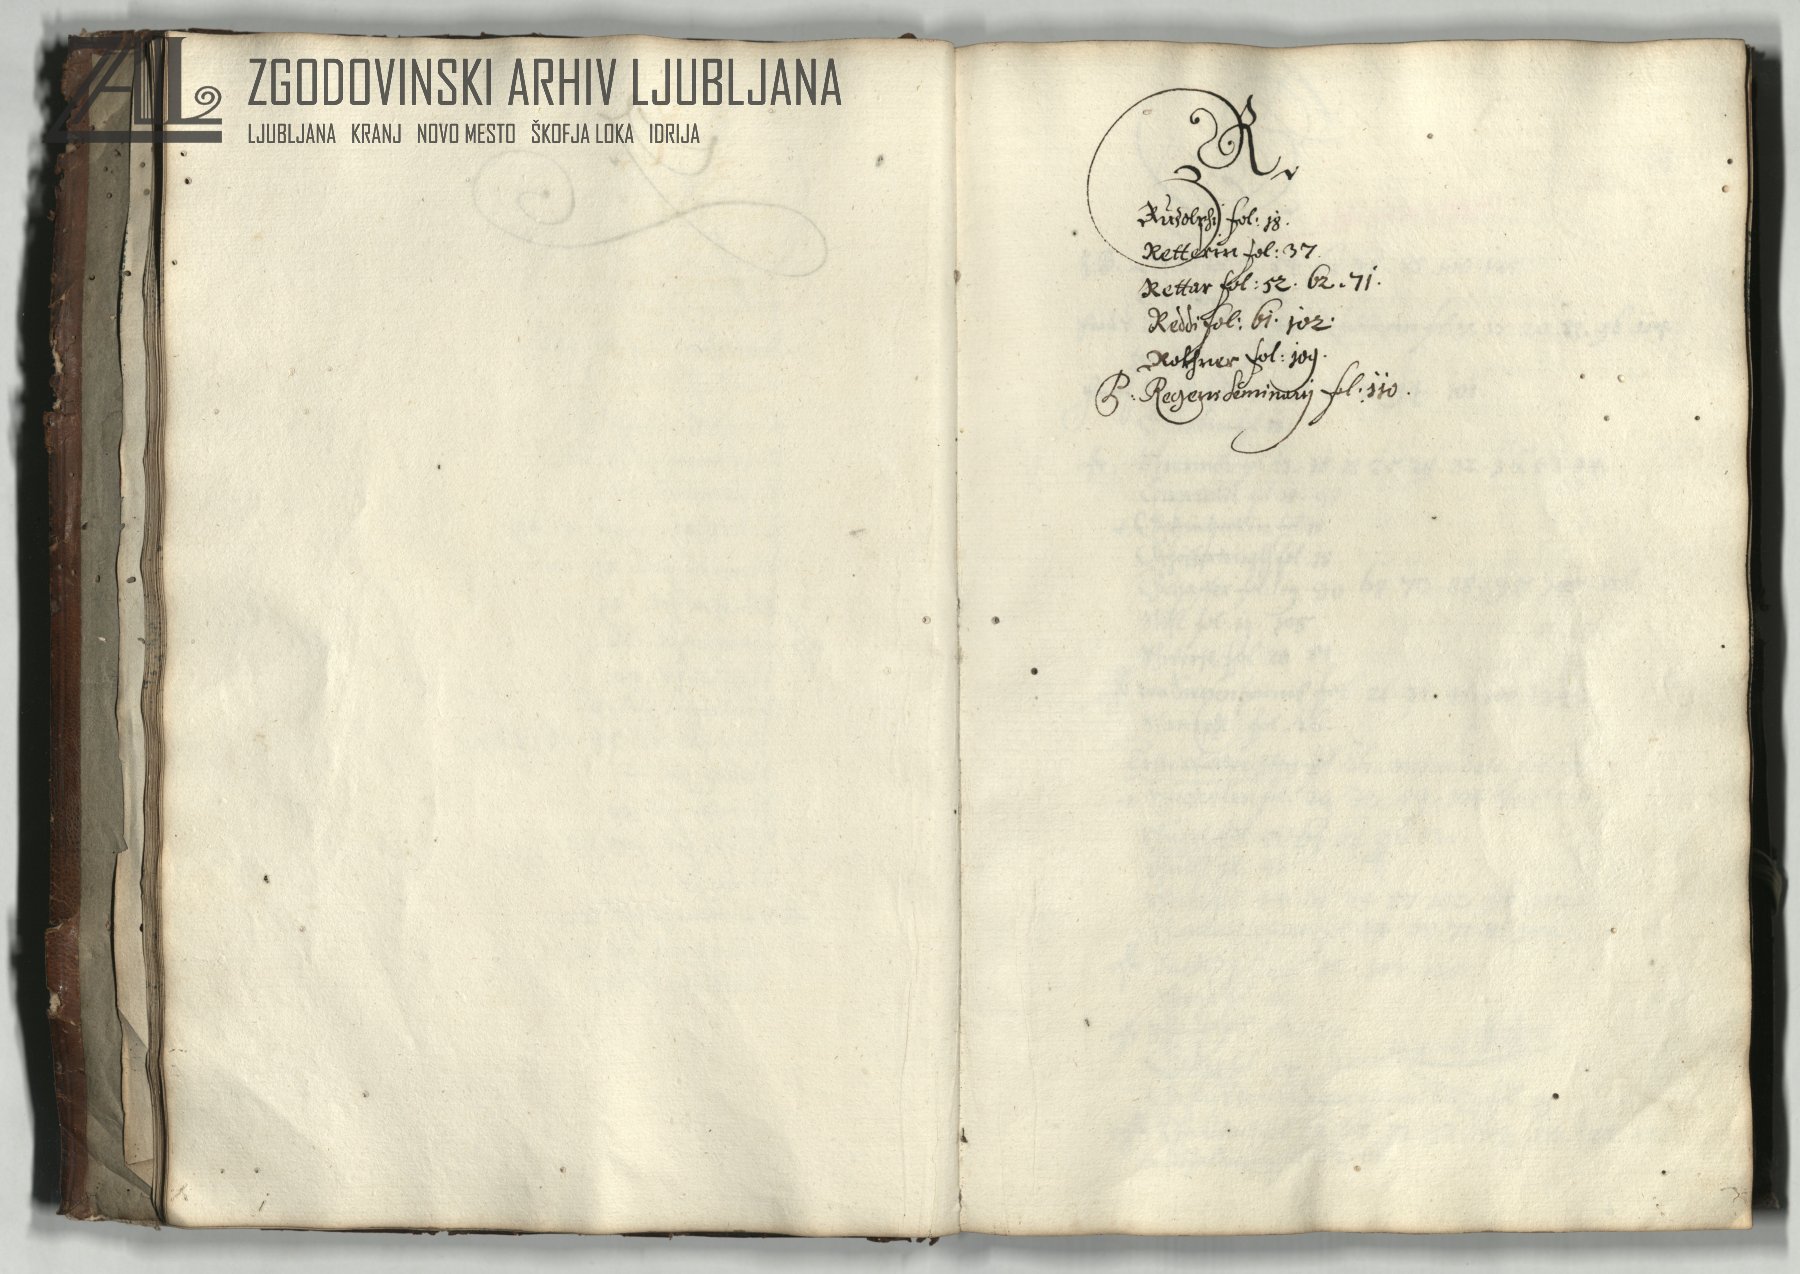 ZGODOVINSKI ARHIV LJUBLJANA
LJUBLJANA KRANJ NOVO MESTO ŠKOFJA LOKA IDRIJA
R.
Rudolphj fol: 18.
Retterin fol: 37.
Rettar fol: 52. 62. 71.
Reddi fol: 61. 102.
Rothner fol: 109.
P. Regens Seminarij fol: 110.